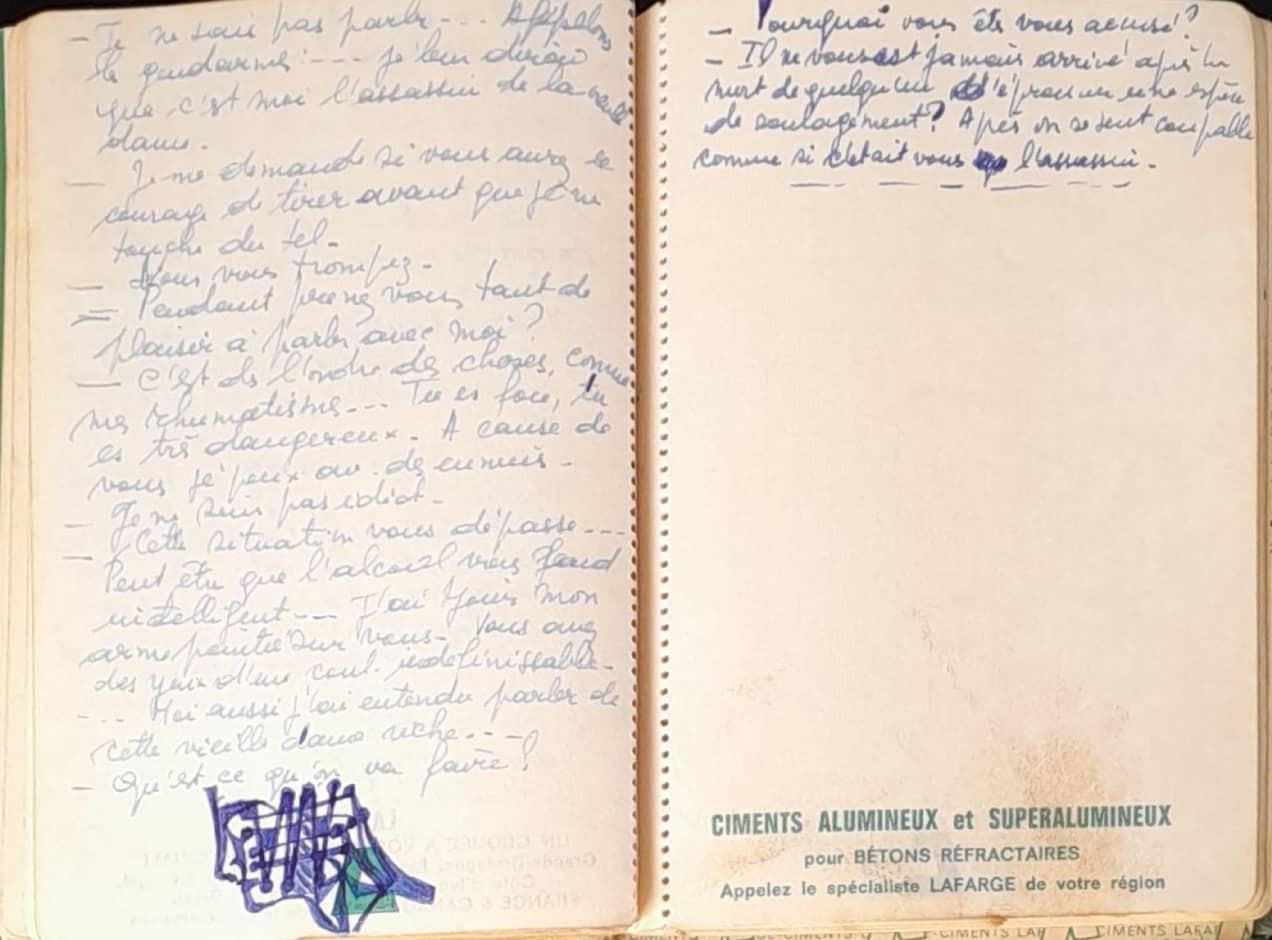 - Je ne sais pas parler --- Appelons
le gendarme ! --- je leur dirai
que c'est moi l'assassin de la vieille
dame.
— Je me demande si vous aurez le
courage de tirer avant que je ne
touche du tel.
— Vous vous trompez.
— prenez vous tant de
plaisir à parler avec moi ?
— C'est ds l'ordre des choses, comme
mes rhumatisme --- Tu es fou, tu
es très dangereux. A cause de
vous je peux av. des ennuis.
— Je ne suis pas idiot.
— Cette situation vous dépasse ---
Peut être que l'alcool vous rend
intelligent --- J'ai mon
arme pointée sur vous. Vous avez
des yeux d'une coul. indefinissable.
--- Moi aussi j'ai entendu parler de
cette vieille dame riche ---
— Qu'est ce qu'on va faire ?
— Pourquoi vous êts vous accusé ?
— Il ne vous est jamais arrivé après la
mort de quelqu'un d'éprouver une espèce
de soulagement ? Après on se sent coupable
comme si c'etait vous l'assassin.
CIMENTS ALUMINEUX et SUPERALUMINEUX
pour BÉTONS RÉFRACTAIRES
Appelez le spécialiste LAFARGE de votre région